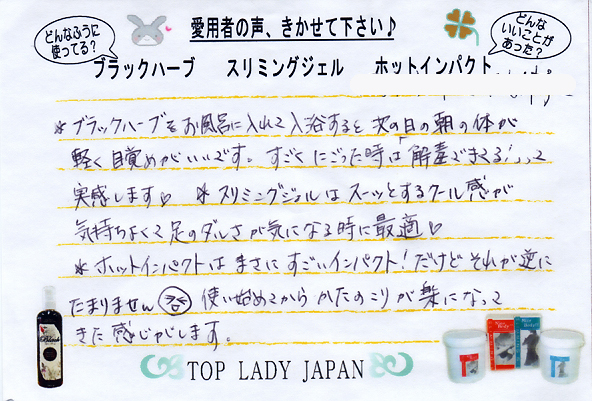 どんなふうに
使ってる?
愛用者の声、きかせて下さい♪
どんな
いいことが
あった?
ブラックハーブ　スリミングジェル　ホットインパクト
*ブラックハーブをお風呂に入れて入浴すると次の日の朝の体が
軽く目覚めがいいです。すごくにごった時は「解毒できてる!」って
実感します♡ *スリミングジェルはスーッとするクール感が
気持ちよくて足のダルさが気になる時に最適♡
*ホットインパクトはまさにすごいインパクト!だけどそれが逆に
たまりません 使い始めてからかたのこりが楽になって
きた感じがします。
TOP LADY JAPAN